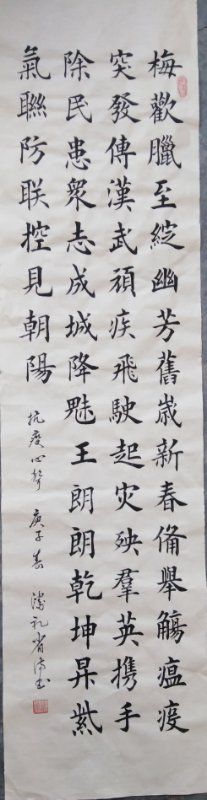 梅歡臘至綻幽芳舊歲新春俻舉觴瘟疫
突發傳漢武頑疾飛駛起灾殃羣英携手
除民患衆志成城降魁王朗朗乾坤昇紫
氣聯防联控見朝陽
抗疫心聲 庚子春